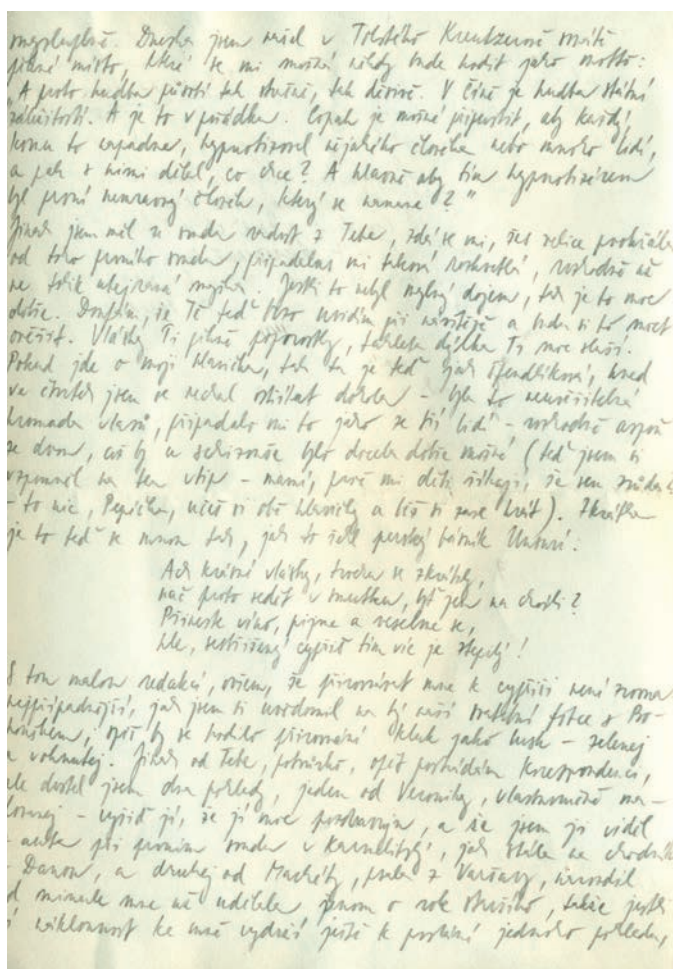 Dneska jsem našel v Tolstého Kreutzerově sonátě
pěkné místo, které se mi možná někdy bude hodit jako motto:
A proto hudba působí tak strašně, tak děsivě. V Číně je hudba státní
záležitostí. A je to v pořádku. Copak je možné připustit, aby každý,
komu to napadne, hypnotizoval nějakého člověka nebo mnoho lidí,
a pak s nimi dělal, co chce? A hlavně aby tím hypnotizérem
byl první nemravný člověk, který se namane?"
Jinak jsem měl u soudu radost z Tebe, zdá se mi, žes velice
od toho prvního soudu, připadalas mi taková rozkvetlá, rozhodně už
ne tolik myška. Jestli to nebyl mylný dojem, tak je to moc
dobře. Doufám, že Tě teď brzo uvidím při návštěvě a budu si to moct
ověřit. Vlásky Ti pěkně povyrostly, tahleta dýlka Ti moc sluší.
Pokud jde o moji hlavičku, tak ta je teď špendlíková, hned
ve čtvrtek jsem se nechal ostříhat dohola - byla to neuvěřitelná
hromada vlasů, připadalo mi to jako ze tří lidí - rozhodně aspoň
ze dvou, což by u schizouše bylo docela dobře možné (teď jsem si
vzpomněl na ten vtip - mami, proč mi děti říkají, že sem zrůda
- to nic, Pepíčku, učeš si obě hlavičky a běž si zase hrát). Zkrátka
je to teď se mnou tak, jak to řekl perský básník Unsurí:
Ach krásné vlásky, trochu se zkrátily,
nač proto sedět v smutku, být jen na chvíli?
Přineste víno, pijme a veselme se,
hle, sestřižený cypřiš tím víc je ztepilý!
S tou malou redakcí, ovšem, že přirovnávat mne k cypřiši není zrovna
nejpřípadnější, jak jsem si uvědomil na tý naší svatební fotce s Pro-
, spíš by se hodilo přirovnání kluk jako buk - zelenej
a vohnutej. Jinak od Tebe, potvůrko, opět postrádám korespondenci,
ale dostal jsem dva pohledy, jeden od Veroniky, vlastnoručně ma-
lovanej - vyřiď jí, že jí moc pozdravuju, a že jsem jí viděl
z auta při prvním soudu v Karmelitský, jak stála na chodníku
s Danou, a druhej od Markéty, psala z Varšavy,
mne už udělala jenom o rok staršího, takže jestli
náklonnost ke mně vydrží ještě k poslání jednoho pohledu,